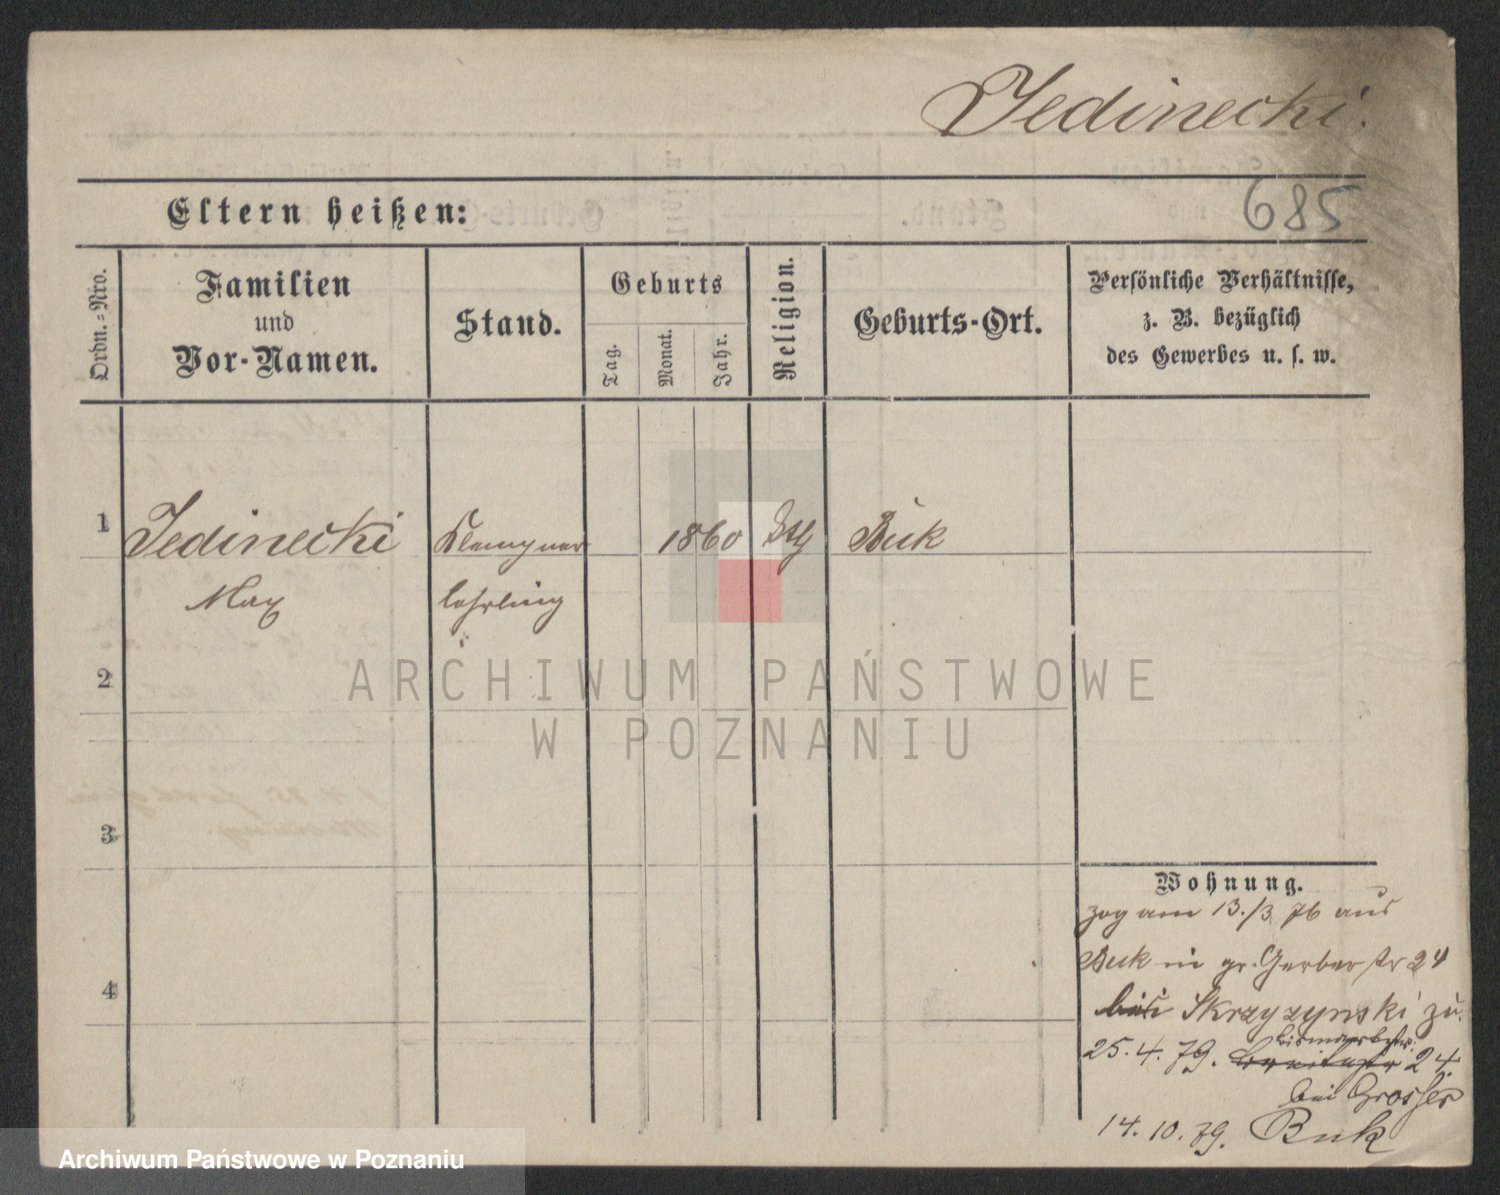 Jedinecki.
685
Eltern heißen:
Ordn.=Nro.
Familien
und
Vor-Namen.
Stand.
Geburts
Tag.
Monat.
Jahr.
Religion.
Geburts-Ort.
Persönliche Verhältnisse,
z. B. bezüglich
des Gewerbes u. s. w.
1
Jedinecki
Klempner
1860
Buk
Max
lehrling
2
ARCHIWUM PAŃSTWOWE
W POZNANIU
3
4
Wohnung.
zog am 13./3 76 aus
Buk in gr. Gerberstr 24
bei Skrzyzynski zu.
25.4.79. 24.
bei Grosser
14.10.79. Buk
Archiwum Państwowe w Poznaniu